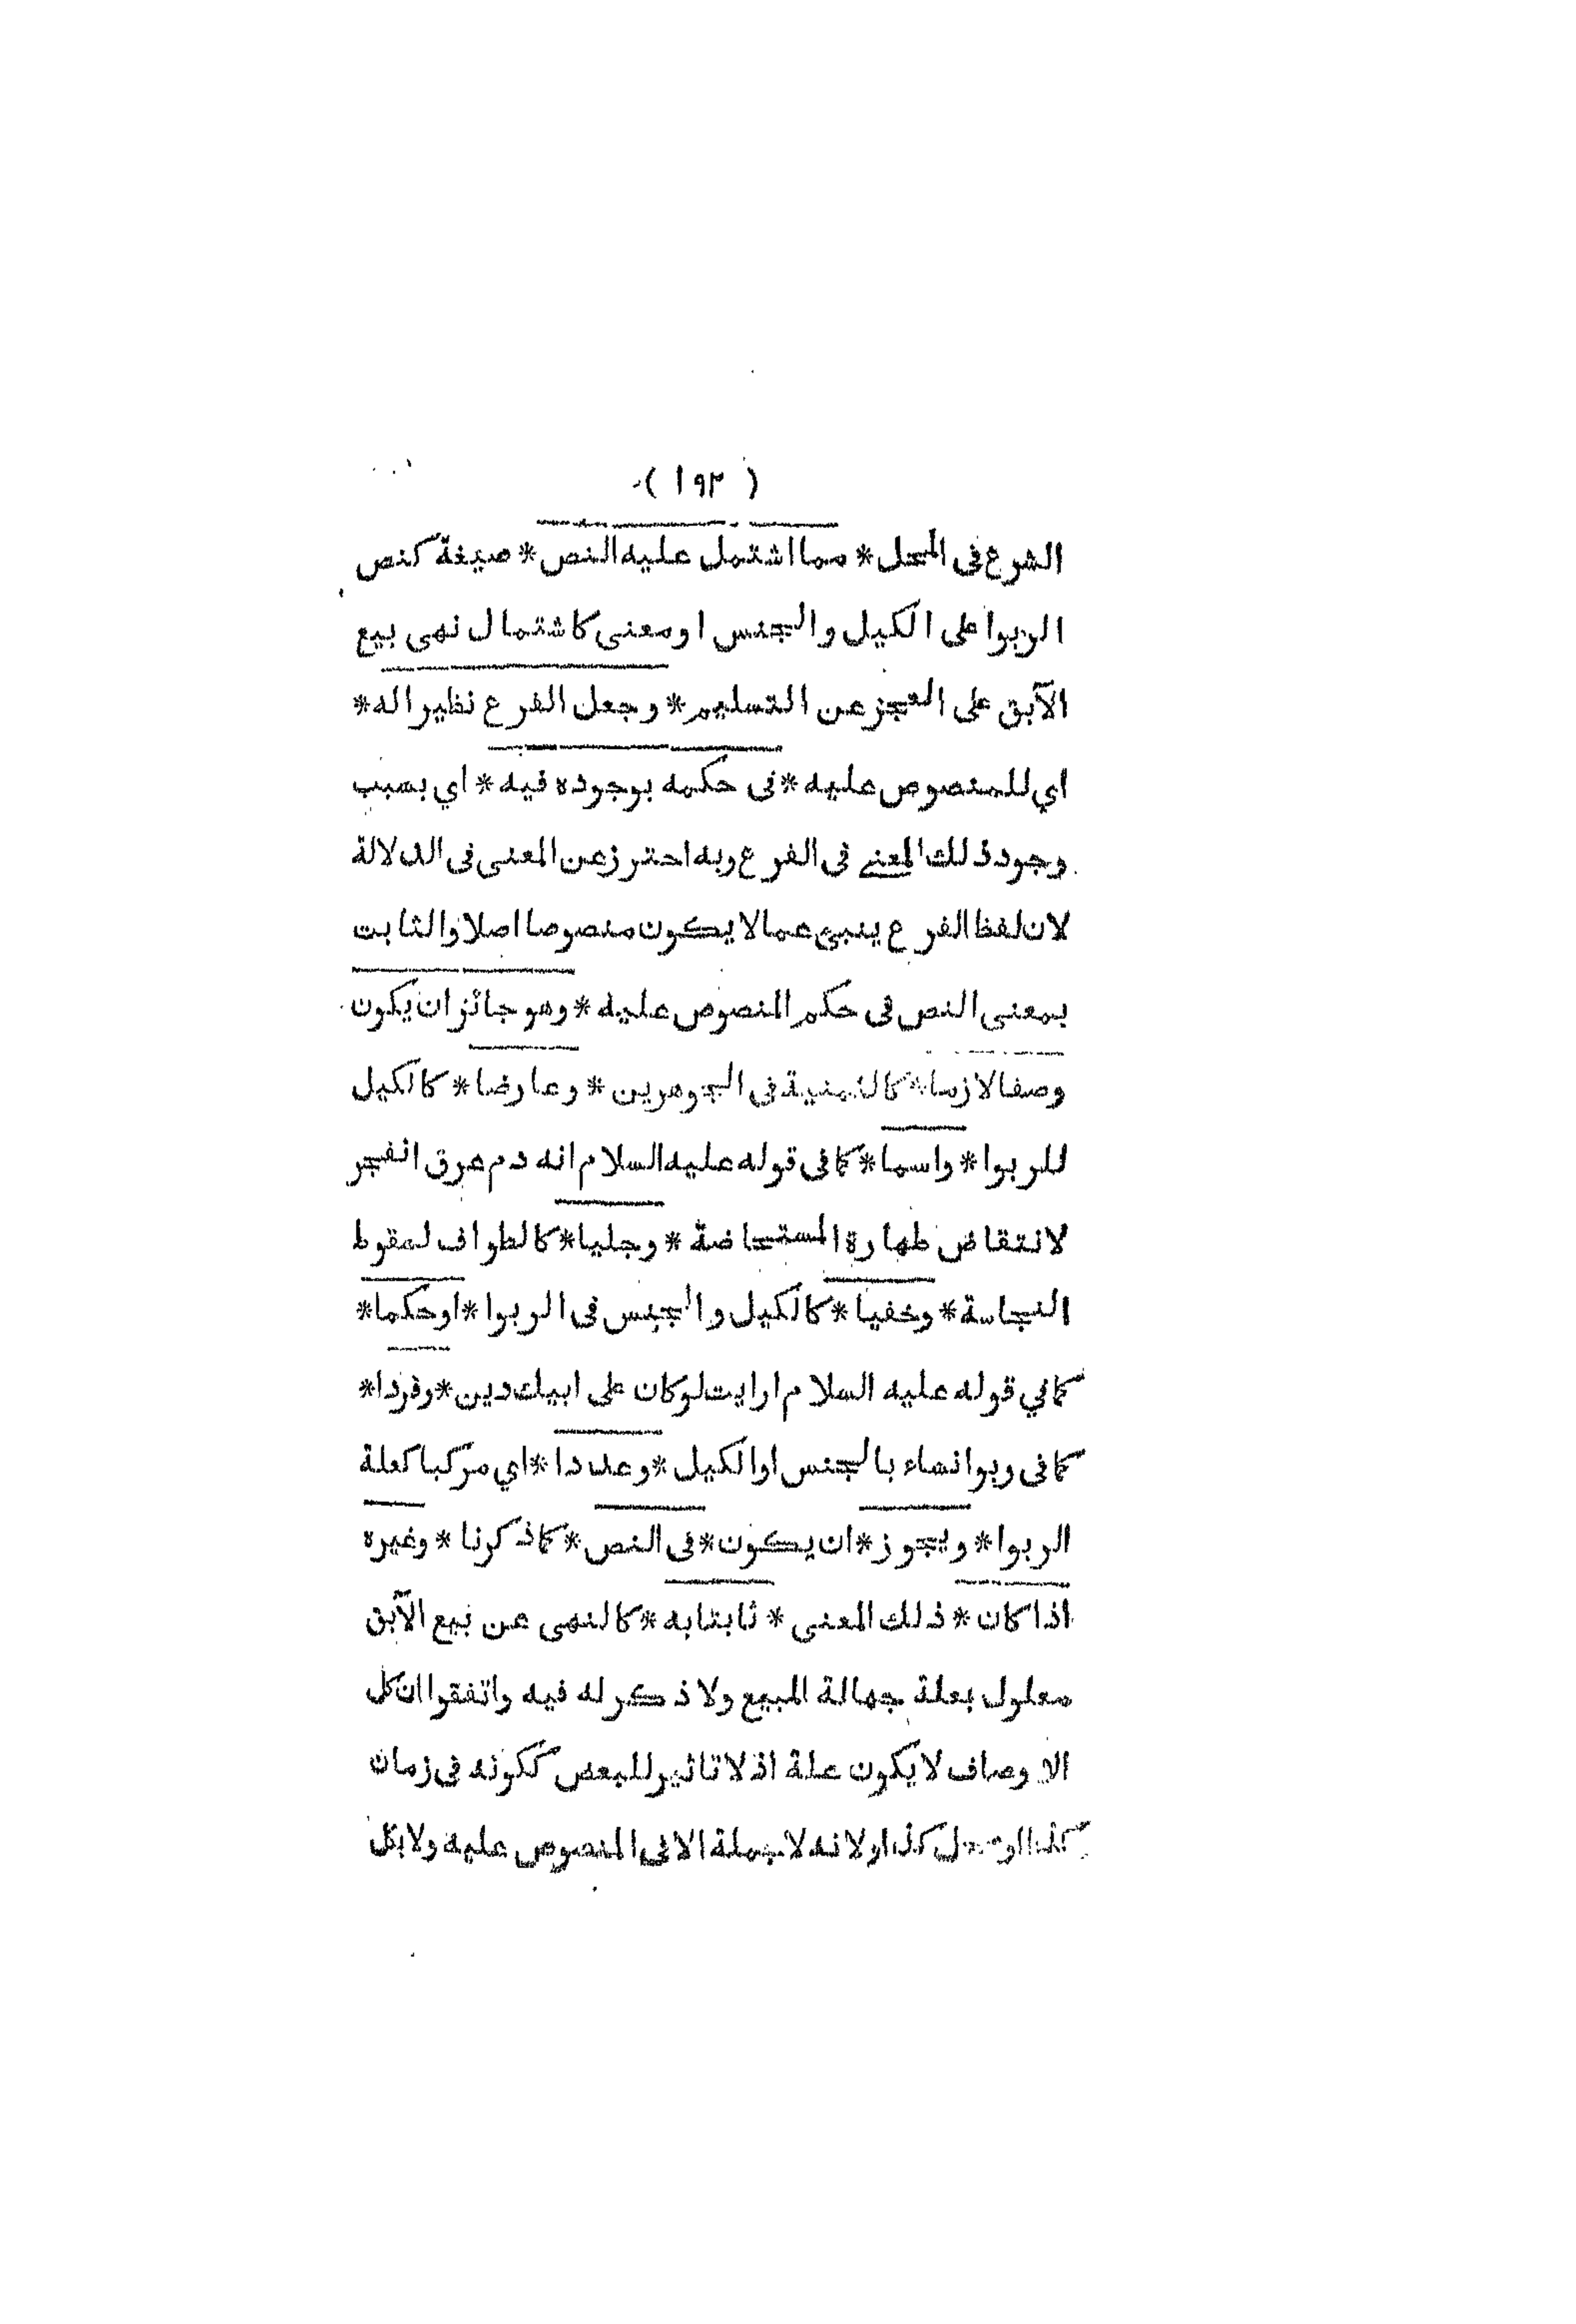 ( ١٩٢ )
الشرع فى المحل * مما اشتمل عليه النص * صيغة كنص
الربوا على الكيل والجنس او معنى كاشتمال نهى بيع
الآبق على العجز عن التسليم * وجعل الفرع نظيرا له *
اي للمنصوص عليه * فى حكمه بوجوده فيه * اي بسبب
وجود ذلك المعنى فى الفرع وبه احترز عن المعنى فى الدلالة
لان لفظ الفرع ينبئ عمالا يكون منصوصا اصلا والثابت
بمعنى النص فى حكم المنصوص عليه * وهو جائز ان يكون
وصفا لازما * كالثمنية فى الجوهرين * وعارضا * كالكيل
للربوا * واسما * كما فى قوله عليه السلام انه دم عرق انفجر
لانتقاض طهارة المستحاضة * وجليا * كالطواف لسقوط
النجاسة * وخفيا * كالكيل والجنس فى الربوا * اوحكما *
كما في قوله عليه السلام ارايت لوكان على ابيك دين * وفردا *
كما فى ربوا نساء بالجنس او الكيل * وعددا * اي مركبا كعلة
الربوا * ويجوز * ان يكون * فى النص * كما ذكرنا * وغيره
اذا كان * ذلك المعنى * ثابتا به * كالنهى عن بيع الآبق
معلول بعلة جهالة المبيع ولا ذكر له فيه واتفقوا ان كل
الاوصاف لا يكون علة اذ لا تاثير للبعض ككونه فى زمان
كذا او كذا ولانه لا جملة الا فى المنصوص عليه ولا بكل